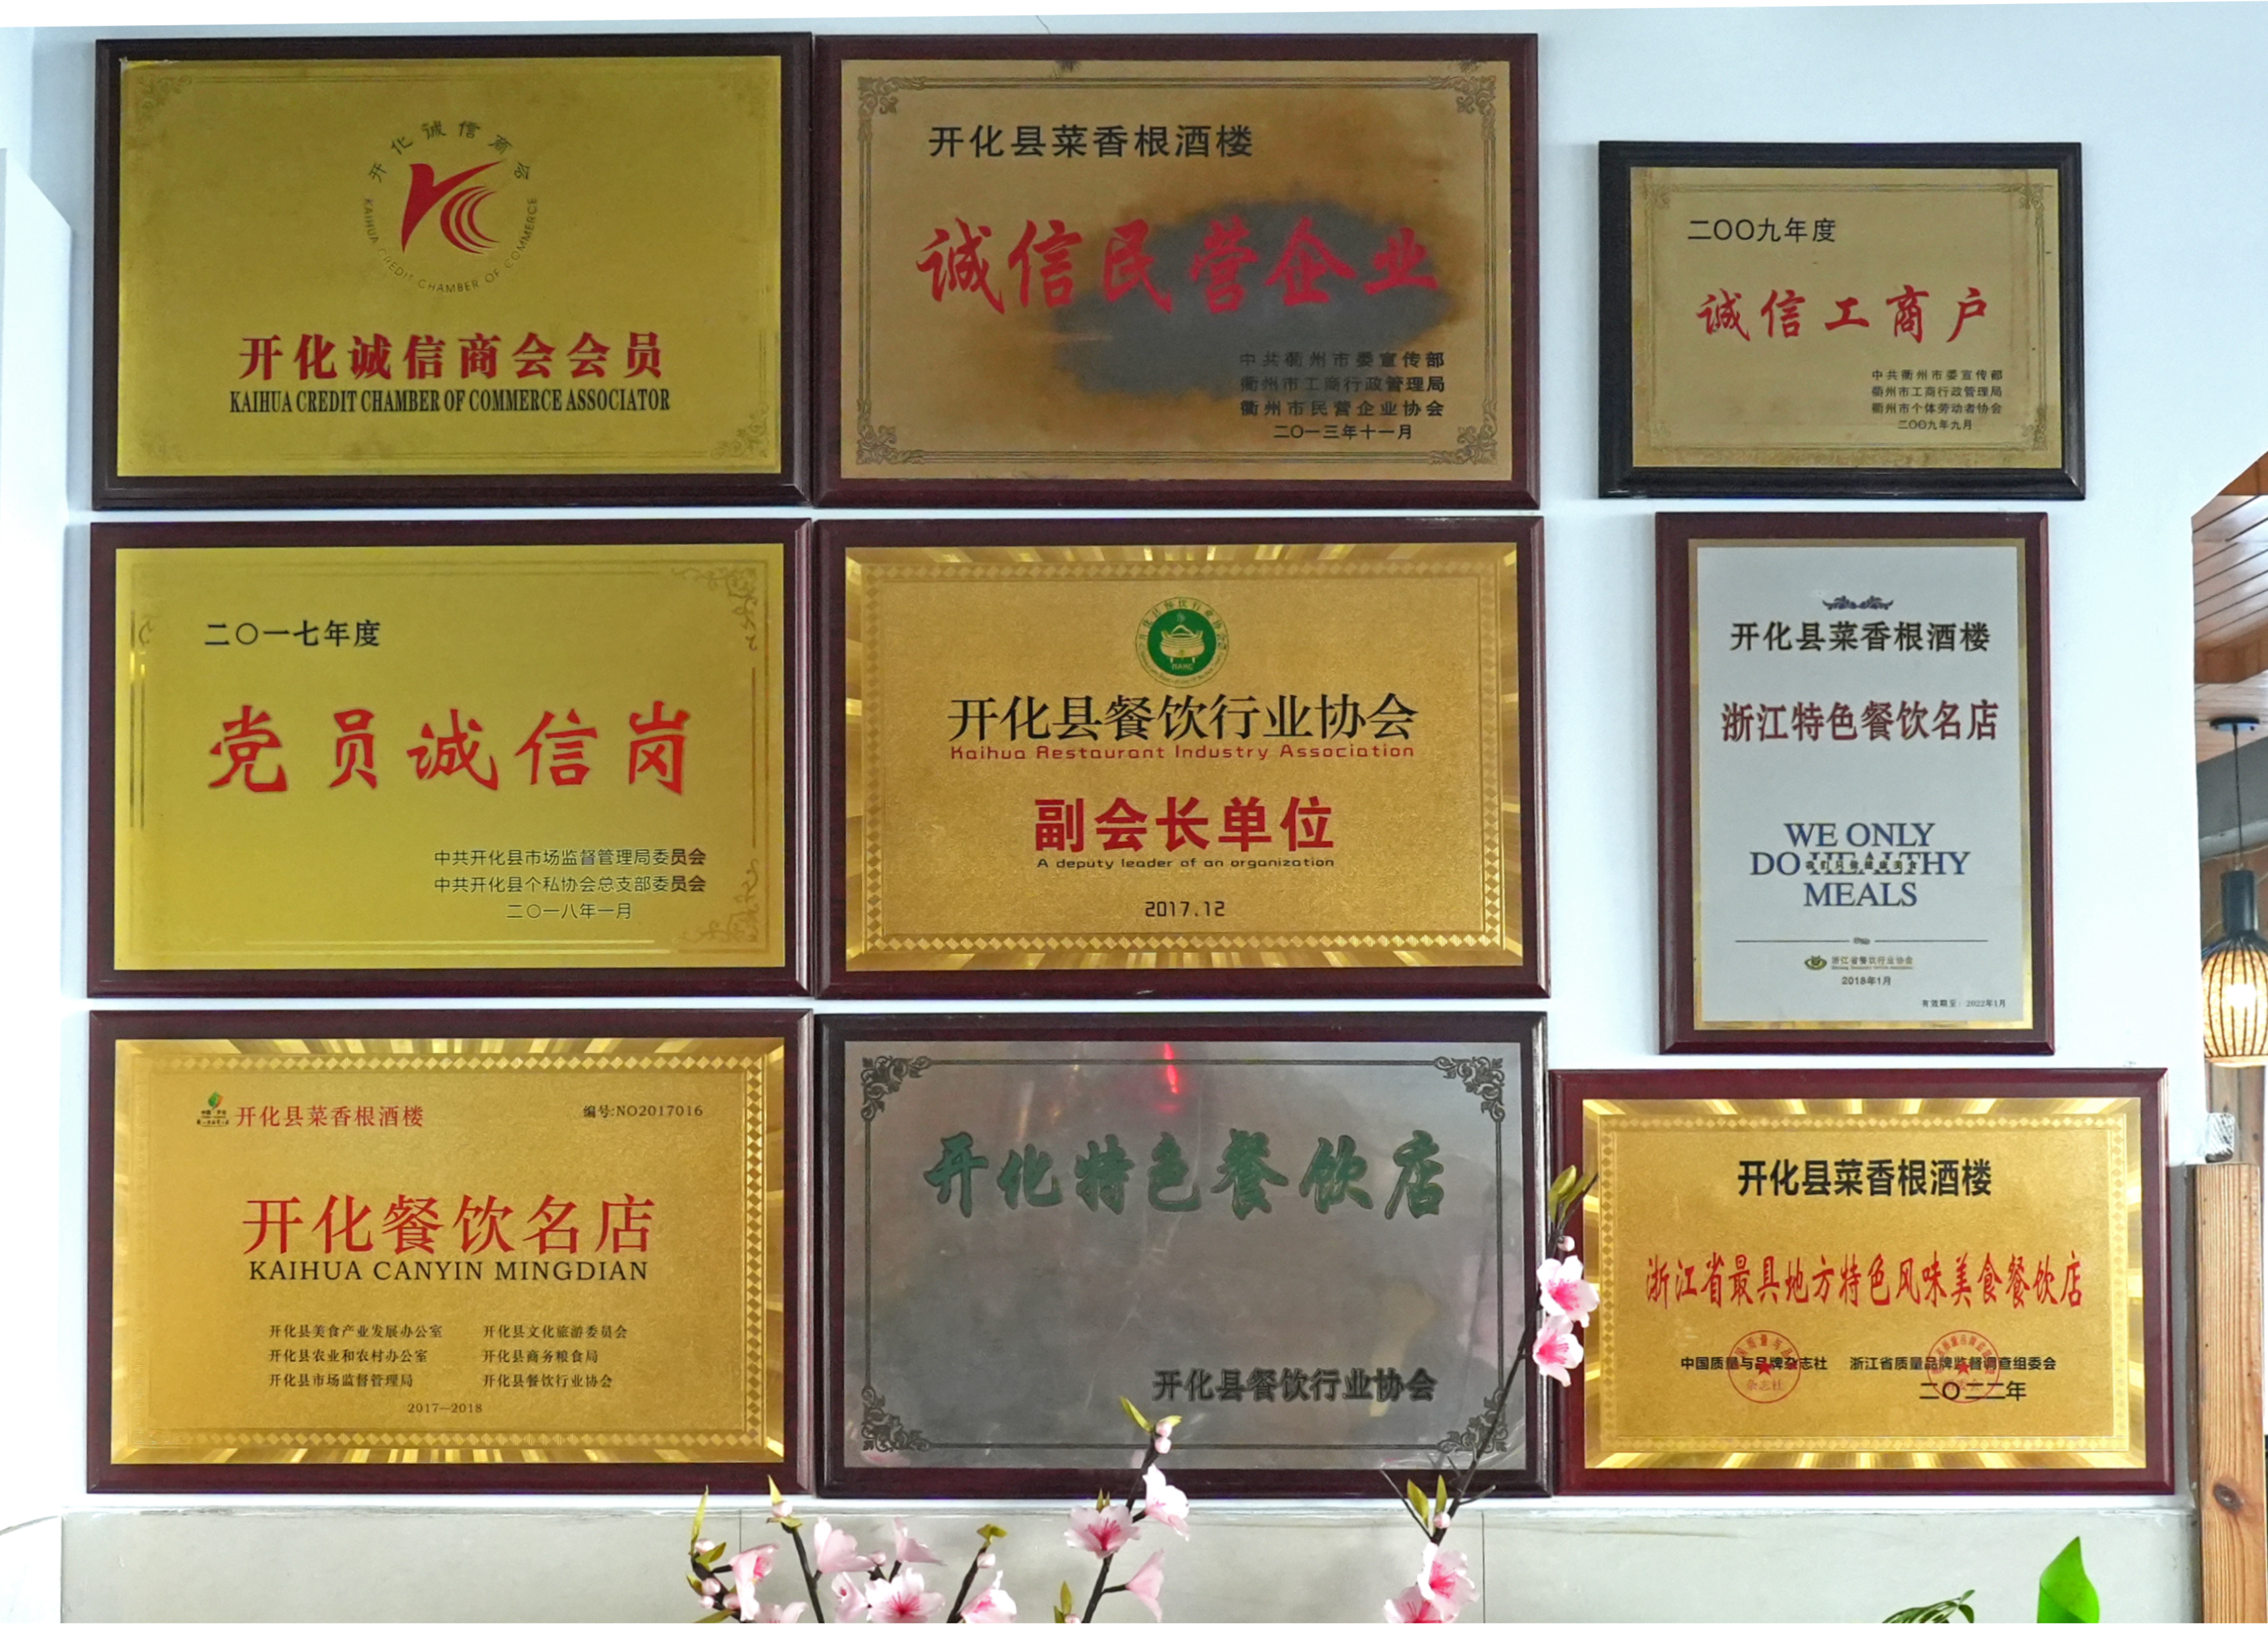 开化诚信商会
KAIHUA CREDIT CHAMBER OF COMMERCE
开化诚信商会会员
KAIHUA CREDIT CHAMBER OF COMMERCE ASSOCIATOR
开化县菜香根酒楼
诚信民营企业
中共衢州市委宣传部
衢州市工商行政管理局
衢州市民营企业协会
二〇一三年十一月
二〇〇九年度
诚信工商户
中共衢州市委宣传部
衢州市工商行政管理局
衢州市个体劳动者协会
二〇〇九年九月
二〇一七年度
党员诚信岗
中共开化县市场监督管理局委员会
中共开化县个私协会总支部委员会
二〇一八年一月
开化县餐饮行业协会
开化县餐饮行业协会
Kaihua Restaurant Industry Association
副会长单位
A deputy leader of an organization
2017.12
开化县菜香根酒楼
浙江特色餐饮名店
WE ONLY
DO HEALTHY
我们只做健康美食
MEALS
浙江省餐饮行业协会
2018年1月
有效期至：2022年1月
开化县菜香根酒楼
编号:NO2017016
开化餐饮名店
KAIHUA CANYIN MINGDIAN
开化县美食产业发展办公室 开化县文化旅游委员会
开化县农业和农村办公室 开化县商务粮食局
开化县市场监督管理局 开化县餐饮行业协会
2017—2018
开化特色餐饮店
开化县餐饮行业协会
开化县菜香根酒楼
浙江省最具地方特色风味美食餐饮店
中国质量与品牌杂志社 浙江省质量品牌监督调查组委会
杂志社
二〇二二年